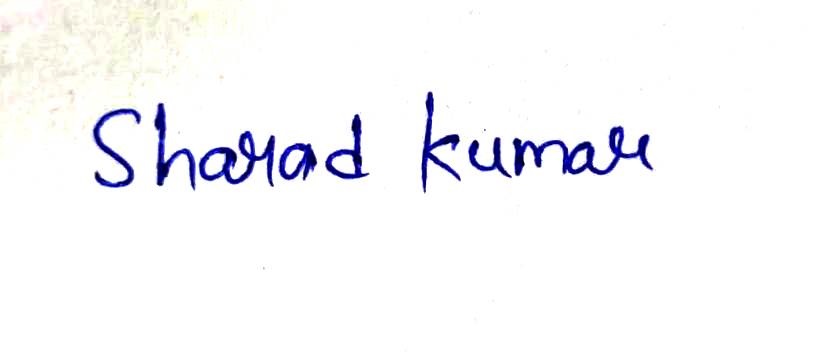 Sharad kumar